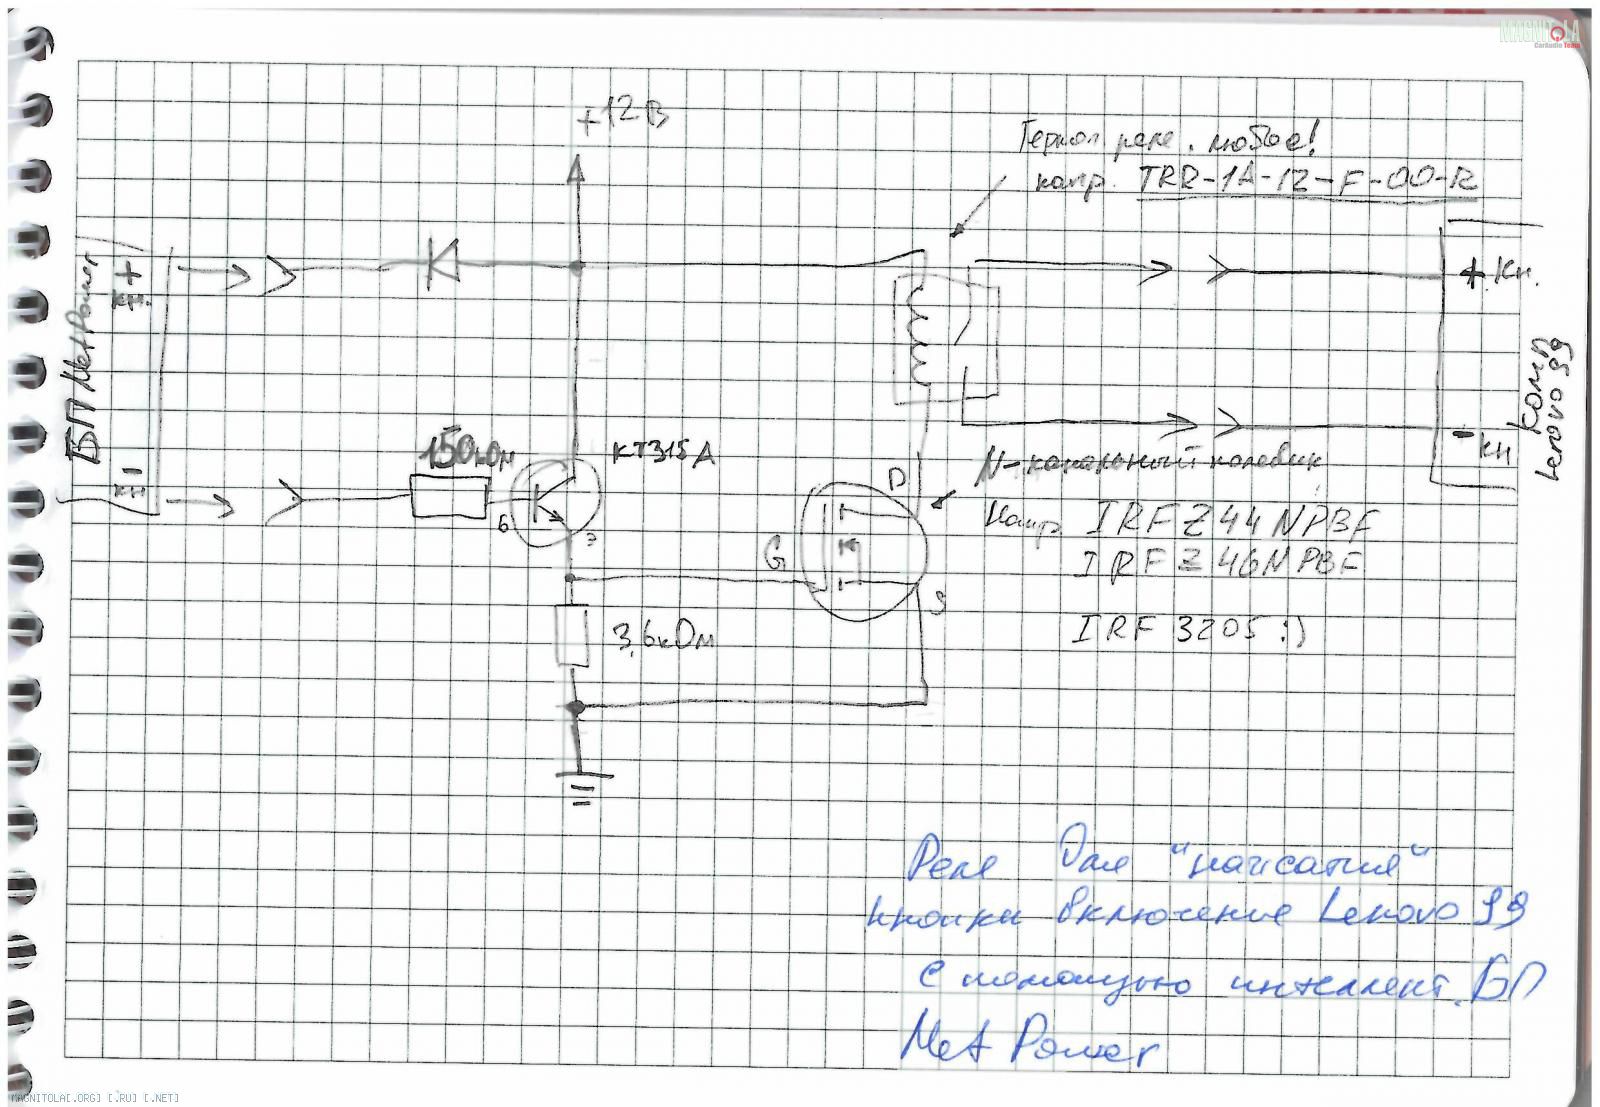 MAGNITOLA
CarAudio Team
+12В
Геркон. реле. любое!
напр. TRR-1A-12-F-00-R
БП MetPower
+
кн.
-
кн
+ Кн.
- Кн
Комп
Lenovo s9
150кОм
КТ315А
б
э
3,6кОм
G
D
S
N-канальный полевик
Напр. IRFZ44NPBF
IRFZ46NPBF
IRF 3205 :)
Реле Для "нажатия"
кнопки включение Lenovo s9
с помощью интеллект. БП
Met Power
MAGNITOLA[.ORG] [.RU] [.NET]